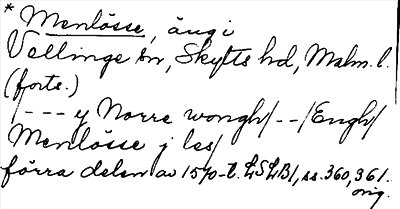 * Menlösse, äng i
Vellinge sn, Skytts hd, Malm. l.
(forts.)
/--- y Norre wongh/--/Engh/
Menlösse j les/
förra delen av 1570-t. LSLB1, ss. 360, 361.
orig.